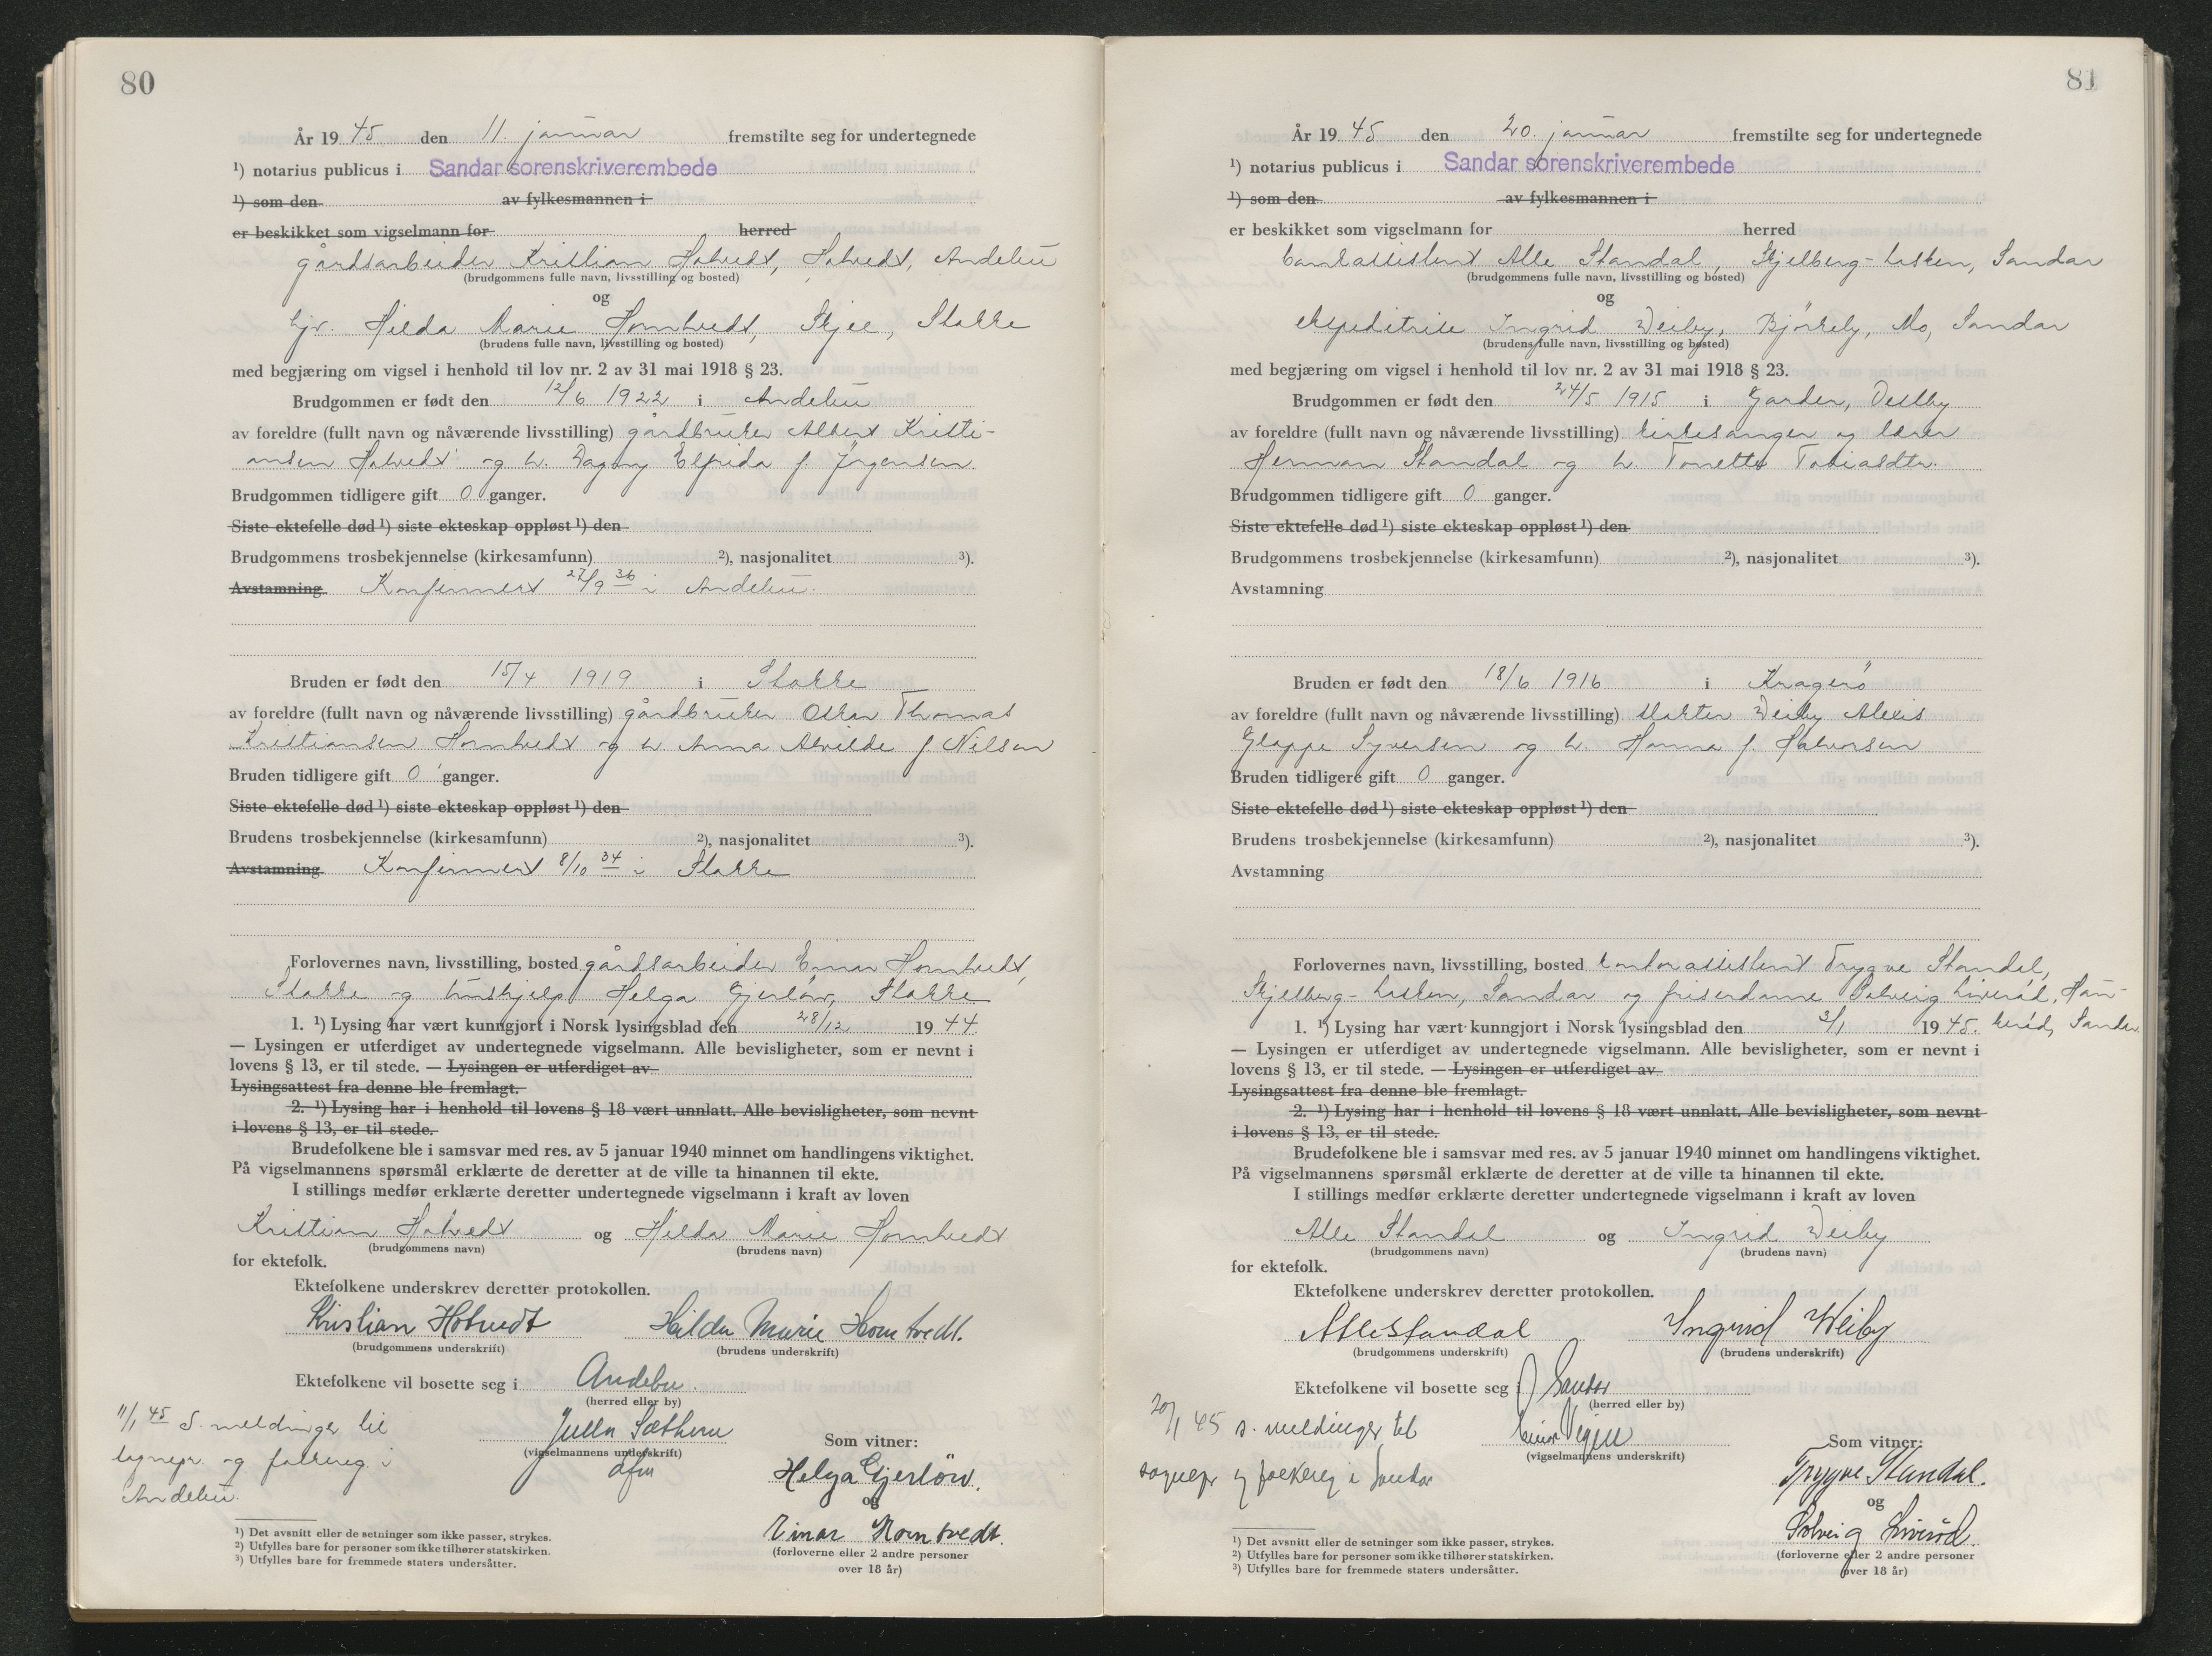 80
År 19 45 den 11. januar fremstilte seg for undertegnede
¹) notarius publicus i Sandar sorenskriverembede
¹) som den av fylkesmannen i
er beskikket som vigselmann for herred
gårdsarbeider Kristian Hotvedt, Hotvedt, Andebu
(brudgommens fulle navn, livsstilling og bosted)
og
hjv. Hilda Marie Homtvedt, Skjee, Stokke
(brudens fulle navn, livsstilling og bosted)
med begjæring om vigsel i henhold til lov nr. 2 av 31 mai 1918 § 23.
Brudgommen er født den 12/6 1922 i Andebu
av foreldre (fullt navn og nåværende livsstilling) gårdbruker Albert Kristi-
ansen Hotvedt og h. Dagny Elfrida f. Jörgensen.
Brudgommen tidligere gift 0 ganger.
Siste ektefelle død ¹) siste ekteskap oppløst ¹) den
Brudgommens trosbekjennelse (kirkesamfunn) ²), nasjonalitet ³).
Avstamning Konfirmert 27/9 36 i Andebu.
Bruden er født den 15/4 1919 i Stokke
av foreldre (fullt navn og nåværende livsstilling) gårdbruker Oskar Thomas
Kristiansen Homtvedt og h. Anna Alvilde f Nilsen
Bruden tidligere gift 0 ganger.
Siste ektefelle død ¹) siste ekteskap oppløst ¹) den
Brudens trosbekjennelse (kirkesamfunn) ²), nasjonalitet ³).
Avstamning Konfirmert 8/10 34 i Stokke
Forlovernes navn, livsstilling, bosted gårdsarbeider Einar Homtvedt,
Stokke og hushjelp Helga Gjerløv, Stokke
1. ¹) Lysing har vært kunngjort i Norsk lysingsblad den 28/12 19 44.
— Lysingen er utferdiget av undertegnede vigselmann. Alle bevisligheter, som er nevnt i
lovens § 13, er til stede. — Lysingen er utferdiget av
Lysingsattest fra denne ble fremlagt.
2. ¹) Lysing har i henhold til lovens § 18 vært unnlatt. Alle bevisligheter, som nevnt
i lovens § 13, er til stede.
Brudefolkene ble i samsvar med res. av 5 januar 1940 minnet om handlingens viktighet.
På vigselmannens spørsmål erklærte de deretter at de ville ta hinannen til ekte.
I stillings medfør erklærte deretter undertegnede vigselmann i kraft av loven
Kristian Hotvedt og Hilda Marie Homtvedt
(brudgommens navn) (brudens navn)
for ektefolk.
Ektefolkene underskrev deretter protokollen.
Kristian Hotvedt Hilda Marie Homtvedt.
(brudgommens underskrift) (brudens underskrift)
Ektefolkene vil bosette seg i Andebu.
(herred eller by)
11/1 45 S. meldinger til
sognepr. og folkereg i
Andebu.
(vigselmannens underskrift)
Som vitner:
Helga Gjerlöw.
og
Einar Homtvedt.
(forloverne eller 2 andre personer
over 18 år)
¹) Det avsnitt eller de setninger som ikke passer, strykes.
²) Utfylles bare for personer som ikke tilhører statskirken.
³) Utfylles bare for fremmede staters undersåtter.
81
År 19 45 den 20. januar fremstilte seg for undertegnede
¹) notarius publicus i Sandar sorenskriverembede
¹) som den av fylkesmannen i
er beskikket som vigselmann for herred
bankassistent Atle Standal, Skjelberg-Lasken, Sandar
(brudgommens fulle navn, livsstilling og bosted)
og
ekspeditrise Ingrid Weiby, Björkely, Mo, Sandar
(brudens fulle navn, livsstilling og bosted)
med begjæring om vigsel i henhold til lov nr. 2 av 31 mai 1918 § 23.
Brudgommen er født den 24/5 1915 i Garder, Vestby
av foreldre (fullt navn og nåværende livsstilling) kirkesanger og lærer
Herman Standal og h. Tonette Tobiasdtr.
Brudgommen tidligere gift 0 ganger.
Siste ektefelle død ¹) siste ekteskap oppløst ¹) den
Brudgommens trosbekjennelse (kirkesamfunn) ²), nasjonalitet ³).
Avstamning
Bruden er født den 18/6 1916 i Kragerö
av foreldre (fullt navn og nåværende livsstilling) slakter Weiby Alexis
Gloppe Syversen og h. Hanna f. Halvorsen
Bruden tidligere gift 0 ganger.
Siste ektefelle død ¹) siste ekteskap oppløst ¹) den
Brudens trosbekjennelse (kirkesamfunn) ²), nasjonalitet ³).
Avstamning
Forlovernes navn, livsstilling, bosted kontorassistent Trygve Standal,
Skjelberg-Lasken, Sandar og friserdame Solveig Liveröd, Hau-
1. ¹) Lysing har vært kunngjort i Norsk lysingsblad den 3/1 19 45. keröd, Sandar.
— Lysingen er utferdiget av undertegnede vigselmann. Alle bevisligheter, som er nevnt i
lovens § 13, er til stede. — Lysingen er utferdiget av
Lysingsattest fra denne ble fremlagt.
2. ¹) Lysing har i henhold til lovens § 18 vært unnlatt. Alle bevisligheter, som nevnt
i lovens § 13, er til stede.
Brudefolkene ble i samsvar med res. av 5 januar 1940 minnet om handlingens viktighet.
På vigselmannens spørsmål erklærte de deretter at de ville ta hinannen til ekte.
I stillings medfør erklærte deretter undertegnede vigselmann i kraft av loven
Atle Standal og Ingrid Weiby
(brudgommens navn) (brudens navn)
for ektefolk.
Ektefolkene underskrev deretter protokollen.
Atle Standal Ingrid Weiby
(brudgommens underskrift) (brudens underskrift)
Ektefolkene vil bosette seg i Sandar
(herred eller by)
20/1 45 s. meldinger til
sognepr og folkereg i Sandar
(vigselmannens underskrift)
Som vitner:
Trygve Standal.
og
Solveig Liveröd.
(forloverne eller 2 andre personer
over 18 år)
¹) Det avsnitt eller de setninger som ikke passer, strykes.
²) Utfylles bare for personer som ikke tilhører statskirken.
³) Utfylles bare for fremmede staters undersåtter.